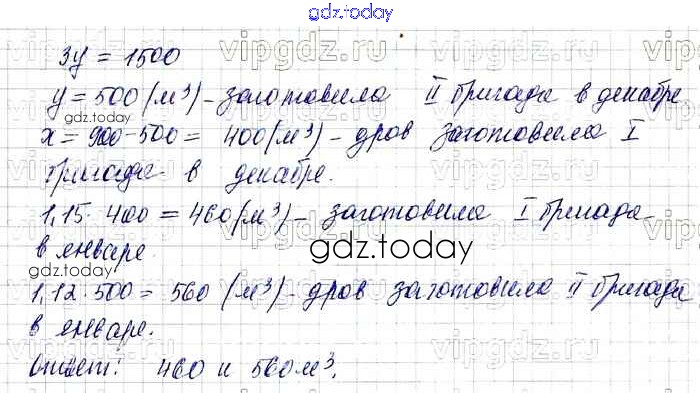 gdz.today
3y = 1500
y = 500 (м³) - заготовила II бригада в декабре
gdz.today
x = 900 - 500 = 400 (м³) - дров заготовила I
бригада в декабре.
1,15 · 400 = 460 (м³) - заготовила I бригада
в январе.
gdz.today
gdz.today
1,12 · 500 = 560 (м³) - дров заготовила II бригада
в январе.
Ответ: 460 и 560 м³.
vipgdz.ru